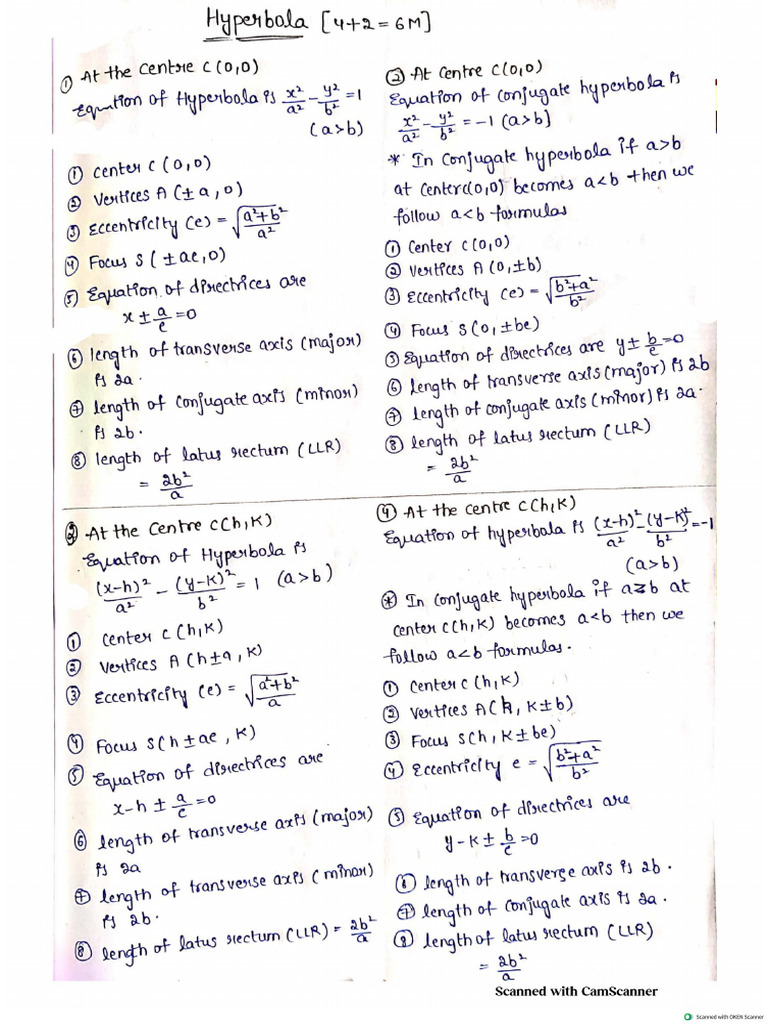 Hyperbola [4+2=6M]
① At the Centre C(0,0)
Equation of Hyperbola is x²/a² - y²/b² = 1
(a>b)
① Center C(0,0)
② Vertices A(±a,0)
③ Eccentricity (e) = √(a²+b²/a²)
④ Focus S(±ae,0)
⑤ Equation of directrices are
x ± a/e = 0
⑥ length of transverse axis (major)
is 2a.
⑦ length of conjugate axis (minor)
is 2b.
⑧ length of latus rectum (LLR)
= 2b²/a
② At Centre C(0,0)
Equation of conjugate hyperbola is
x²/a² - y²/b² = -1 (a>b)
* In Conjugate hyperbola if a>b
at center C(0,0) becomes a<b then we
follow a<b formulas
① Center C(0,0)
② Vertices A(0,±b)
③ Eccentricity (e) = √(b²+a²/b²)
④ Focus S(0,±be)
⑤ Equation of directrices are y ± b/e = 0
⑥ length of transverse axis (major) is 2b
⑦ length of conjugate axis (minor) is 2a.
⑧ length of latus rectum (LLR)
= 2b²/a
③ At the Centre C(h,K)
Equation of Hyperbola is
(x-h)²/a² - (y-K)²/b² = 1 (a>b)
① Center C(h,K)
② Vertices A(h±a, K)
③ Eccentricity (e) = √(a²+b²/a)
④ Focus S(h±ae, K)
⑤ Equation of directices are
x-h ± a/e = 0
⑥ length of transverse axis (major)
is 2a
⑦ length of transverse axis (minor)
is 2b.
⑧ length of latus rectum (LLR) = 2b²/a
④ At the centre C(h,K)
Equation of hyperbola is (x-h)²/a² - (y-K)²/b² = -1
(a>b)
* In Conjugate hyperbola if a≥b at
center C(h,K) becomes a<b then we
follow a<b formulas.
① Center C(h,K)
② Vertices A(h, K±b)
③ Focus S(h, K±be)
④ Eccentricity e = √(b²+a²/b²)
⑤ Equation of directices are
y-K ± b/e = 0
⑥ length of transverse axis is 2b.
⑦ length of conjugate axis is 2a.
⑧ length of latus rectum (LLR)
= 2b²/a
Scanned with CamScanner
Scanned with OKEN Scanner